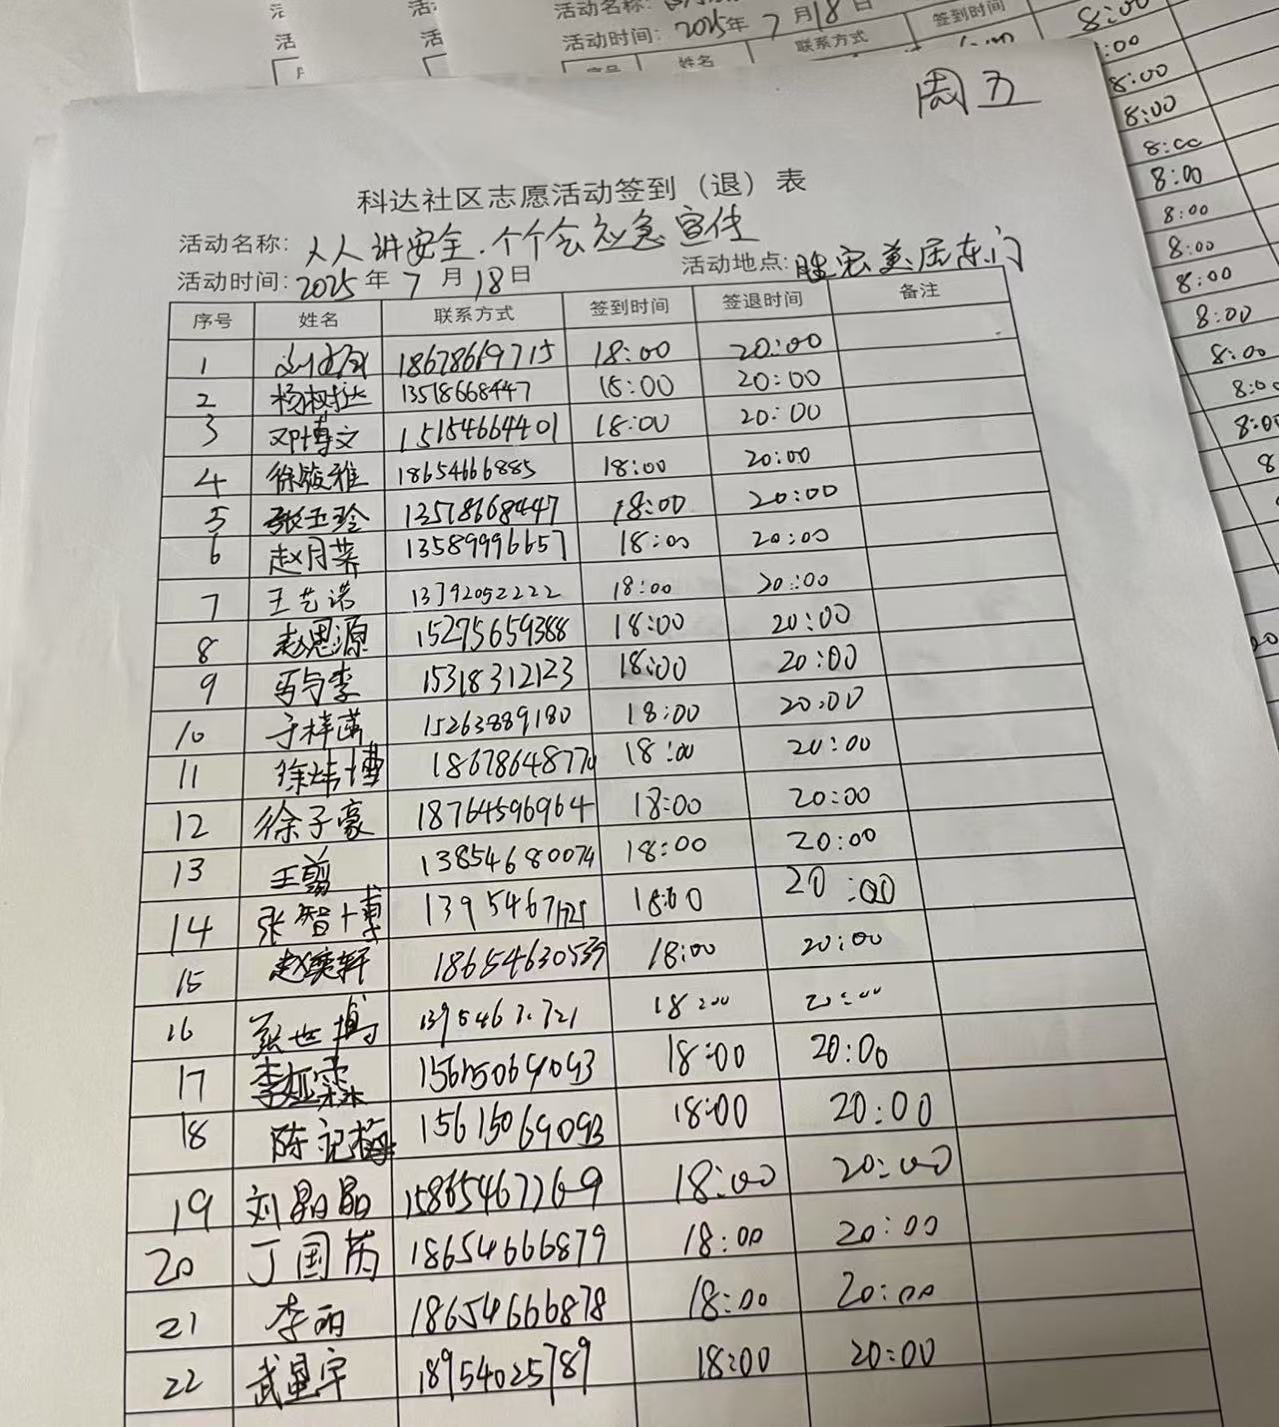 活动名称:
活动时间: 2025年 7 月 18 日
姓名 联系方式 签到时间
8:00
8:00
8:00
8:00
8:00
8:00
8:00
8:00
8:00
8:00
8:00
8:00
周五
科达社区志愿活动签到（退）表
活动名称: 人人讲安全.个个会应急宣传
活动时间: 2025年 7 月 18日 活动地点: 东门
序号 姓名 联系方式 签到时间 签退时间 备注
1 18678669715 18:00 20:00
2 13518668447 18:00 20:00
3 邓博文 15154664401 18:00 20:00
4 徐毓雅 18654666885 18:00 20:00
5 张玉玲 13518668447 18:00 20:00
6 赵月英 13589996657 18:00 20:00
7 王艺诺 13792052222 18:00 20:00
8 赵思源 15275659388 18:00 20:00
9 马与李 15318312123 18:00 20:00
10 于梓菡 15263889180 18:00 20:00
11 徐炜博 18678648770 18:00 20:00
12 徐子豪 18764596964 18:00 20:00
13 王翦 13854680074 18:00 20:00
14 张智博 18:00 20:00
15 赵奕轩 18654630539 18:00 20:00
16 张世博 18:00 20:00
17 李姃霖 15615069093 18:00 20:00
18 陈记梅 15615069093 18:00 20:00
19 刘晶晶 15865467269 18:00 20:00
20 丁国芮 18654666879 18:00 20:00
21 李丽 18654666878 18:00 20:00
22 武星宇 18954025789 18:00 20:00